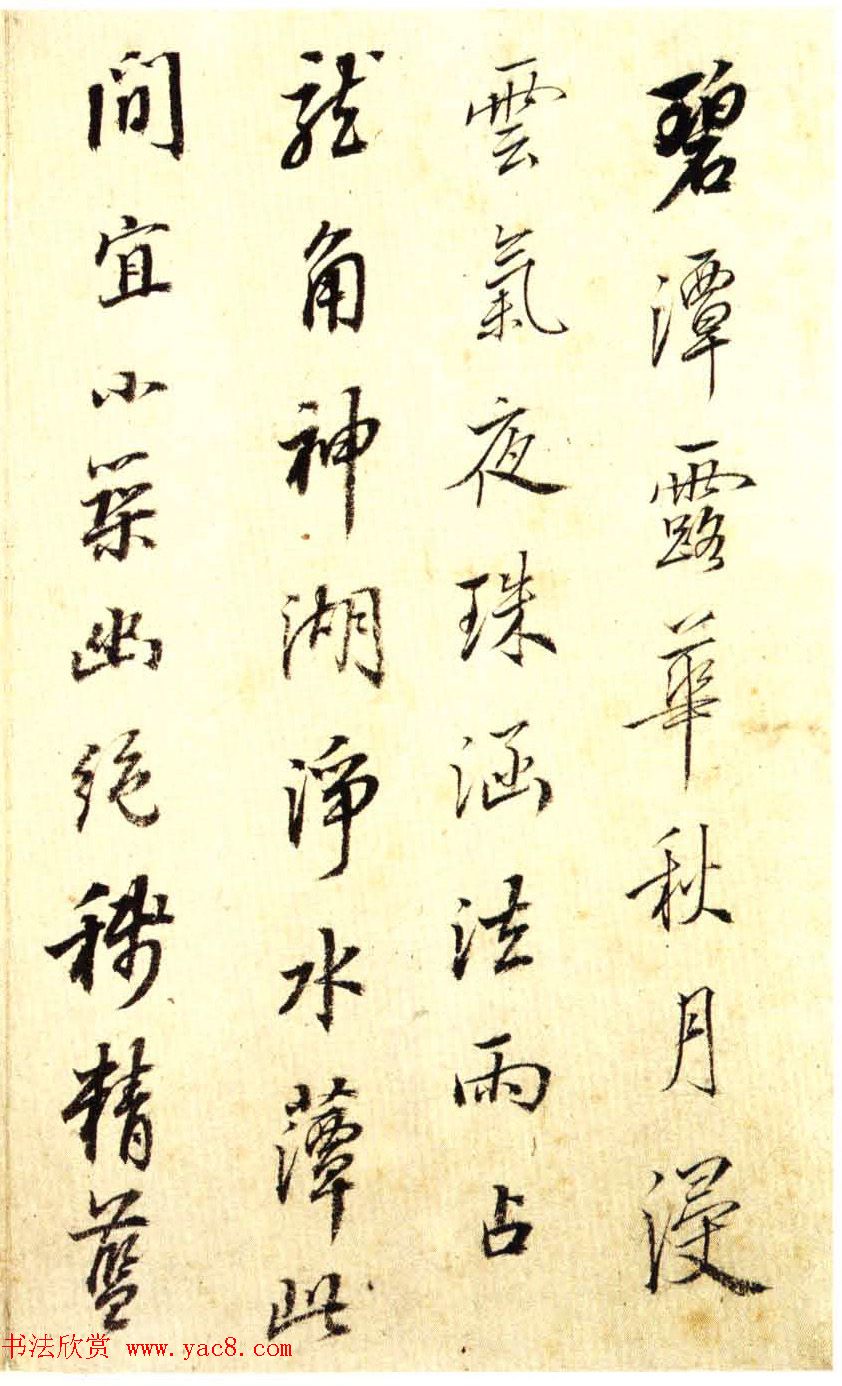 碧潭露華秋月浸
雲氣夜珠涵法雨占
龍角神湖淨水藫此
間宜小築幽絕稱精藍
书法欣赏 www.yac8.com